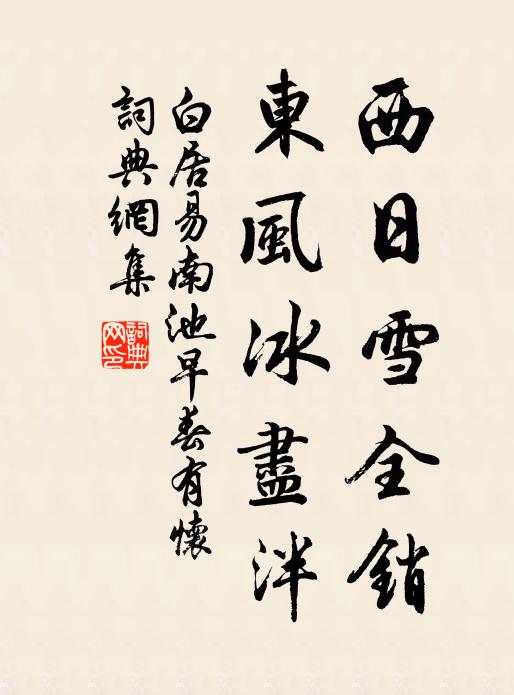 西日雪全銷
東風冰盡泮
白居易南池早春有懷
詞典網集
詞典
网印